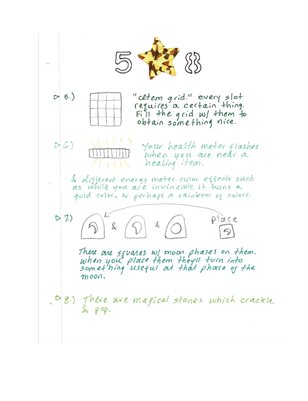 5 8
5.) "cetem grid." every slot
requires a certain thing.
Fill the grid w/ them to
obtain something nice.
6.) Your health meter flashes
when you are near a
healing item.
& different energy meter color effects such
as while you are invincible it turns a
gold color, or perhaps a rainbow of colors.
7.) & & Place
There are squares w/ moon phases on them.
when you place them they'll turn into
something useful at that phase of the
moon.
8.) There are magical stones which crackle
& pop.